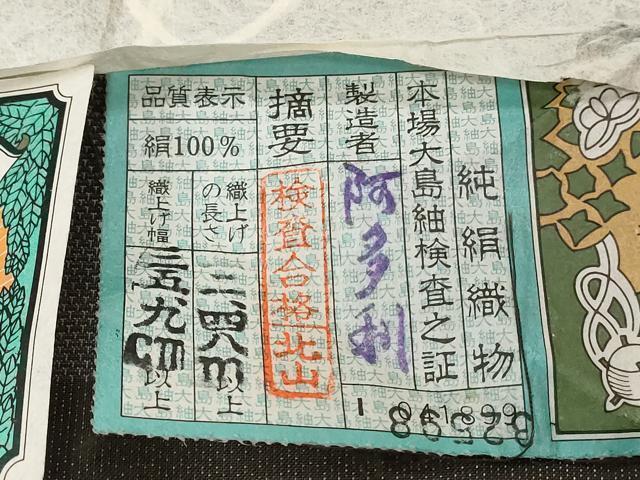 純絹織物
本場大島紬検査之証
製造者
阿多利
摘要
検査合格
北山
品質表示
絹100%
織上げ
の長さ
一二、四八m以上
織上げ幅
三五、九cm以上